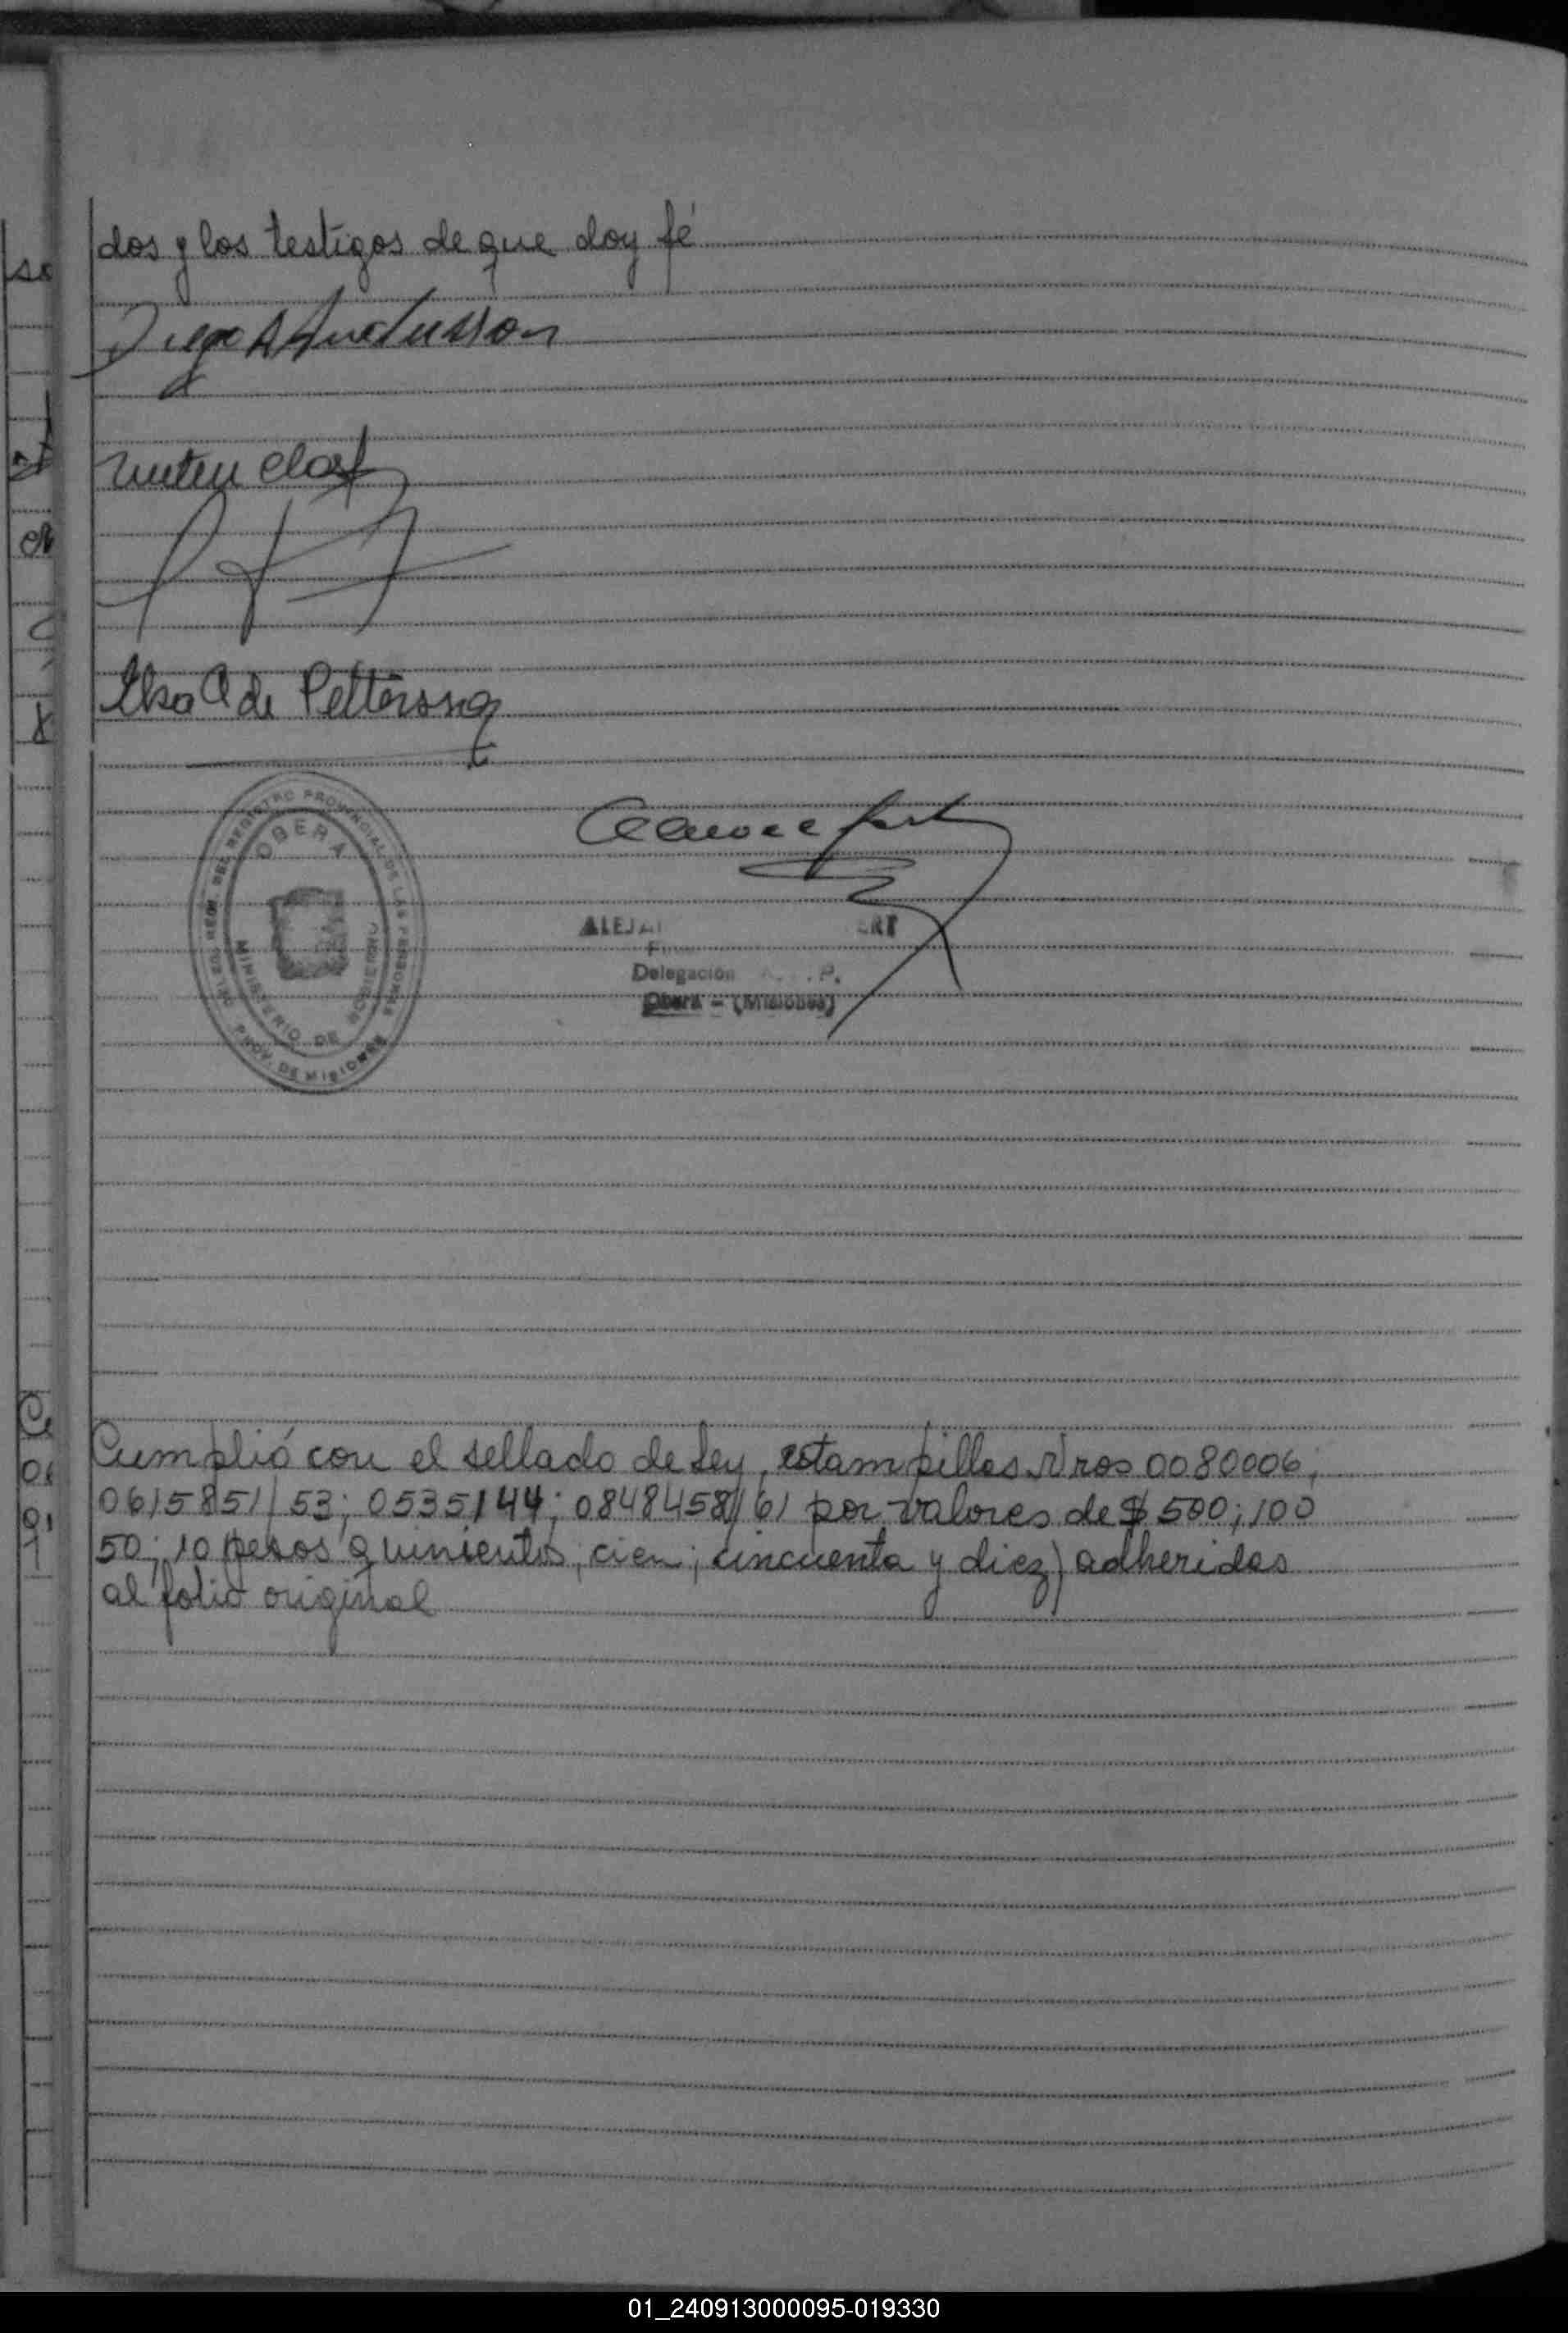 dos y los testigos de que doy fé
Diego A Andersson
Elsa A de Pettersson
REGISTRO PROVINCIAL DE LAS PERSONAS
OBERA
MINISTERIO DE GOBIERNO
PROV. DE MISIONES
ALEJA ERT
Delegación R. P.
Oberá - (Misiones)
Cumplió con el sellado de Ley, estampillas Nros 0080006;
0615851/53; 0535144; 0848458/61 por valores de $ 500; 100
50; 10 pesos quinientos; cien; cincuenta y diez) adheridas
al folio original
01_240913000095-019330